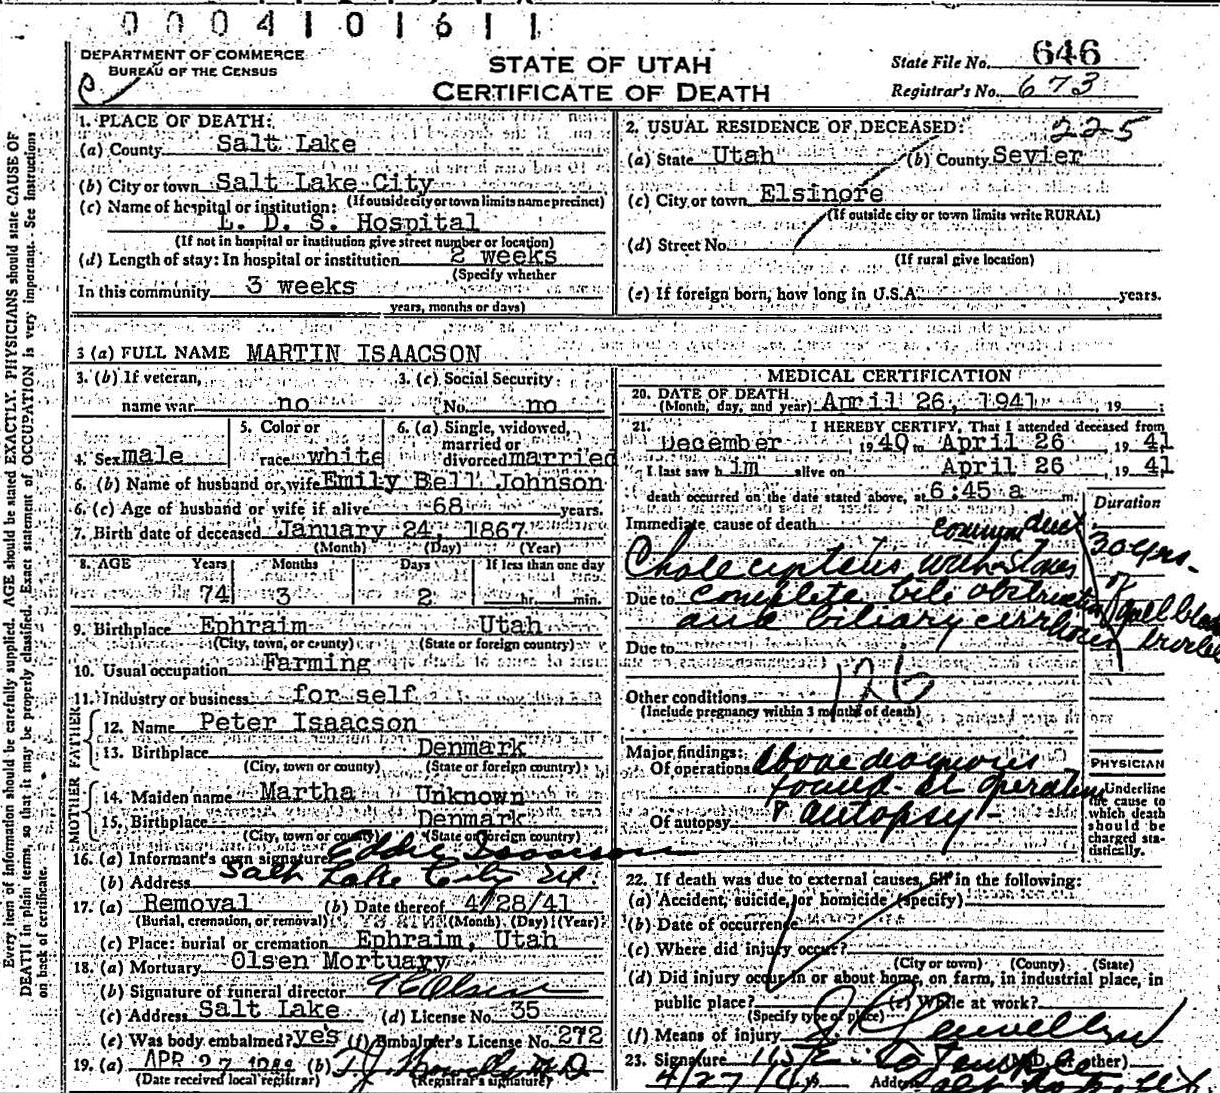 0004101611
DEPARTMENT OF COMMERCE
BUREAU OF THE CENSUS
STATE OF UTAH
CERTIFICATE OF DEATH
State File No. 646
Registrar's No. 673
1. PLACE OF DEATH:
(a) County Salt Lake
(b) City or town Salt Lake City
(If outside city or town limits name precinct)
(c) Name of hospital or institution:
L. D. S. Hospital
(If not in hospital or institution give street number or location)
(d) Length of stay: In hospital or institution 2 weeks
(Specify whether
In this community 3 weeks
years, months or days)
2. USUAL RESIDENCE OF DECEASED: 225
(a) State Utah (b) County Sevier
(c) City or town Elsinore
(If outside city or town limits write RURAL)
(d) Street No.
(If rural give location)
(e) If foreign born, how long in U.S.A. years.
3 (a) FULL NAME MARTIN ISAACSON
3. (b) If veteran, 3. (c) Social Security
name war no No. no
4. Sex male 5. Color or race white 6. (a) Single, widowed, married or divorced married
6. (b) Name of husband or wife Emily Bell Johnson
6. (c) Age of husband or wife if alive 68 years.
7. Birth date of deceased January 24, 1867
(Month) (Day) (Year)
8. AGE Years Months Days If less than one day
74 3 2 hr. min.
9. Birthplace Ephraim Utah
(City, town, or county) (State or foreign country)
10. Usual occupation Farming
11. Industry or business for self
FATHER
12. Name Peter Isaacson
13. Birthplace Denmark
(City, town or county) (State or foreign country)
MOTHER
14. Maiden name Martha Unknown
15. Birthplace Denmark
(City, town or county) (State or foreign country)
16. (a) Informant's own signature Eddie Isaacson
(b) Address Salt Lake City Ut.
17. (a) Removal (b) Date thereof 4/28/41
(Burial, cremation, or removal) (Month) (Day) (Year)
(c) Place: burial or cremation Ephraim, Utah
18. (a) Mortuary Olsen Mortuary
(b) Signature of funeral director Olsen
(c) Address Salt Lake (d) License No. 35
(e) Was body embalmed? yes (f) Embalmer's License No. 272
19. (a) APR 27 (b) T. J. Howells M D
(Date received local registrar) (Registrar's signature)
MEDICAL CERTIFICATION
20. DATE OF DEATH
(Month, day, and year) April 26, 1941, 19
21. I HEREBY CERTIFY, That I attended deceased from
December 1940 to April 26, 1941
I last saw him alive on April 26, 1941
death occurred on the date stated above, at 6:45 a m.
Duration
Immediate cause of death common duct
Cholecystitis with stones 30 yrs.
Due to complete bile obstruction of gall bladder
and biliary cirrhosis
Due to
126
Other conditions
(Include pregnancy within 3 months of death)
Major findings:
Of operations above diagnosis
found at operation
Of autopsy & autopsy -
PHYSICIAN
Underline the cause to which death should be charged statistically.
22. If death was due to external causes, fill in the following:
(a) Accident, suicide, or homicide (specify)
(b) Date of occurrence
(c) Where did injury occur?
(City or town) (County) (State)
(d) Did injury occur in or about home, on farm, in industrial place, in
public place? (e) While at work?
(Specify type of place)
(f) Means of injury
23. Signature (M.D. or other)
4/27/41 Address
Every item of information should be carefully supplied. AGE should be stated EXACTLY. PHYSICIANS should state CAUSE OF
DEATH in plain terms, so that it may be properly classified. Exact statement of OCCUPATION is very important. See instructions
on back of certificate.